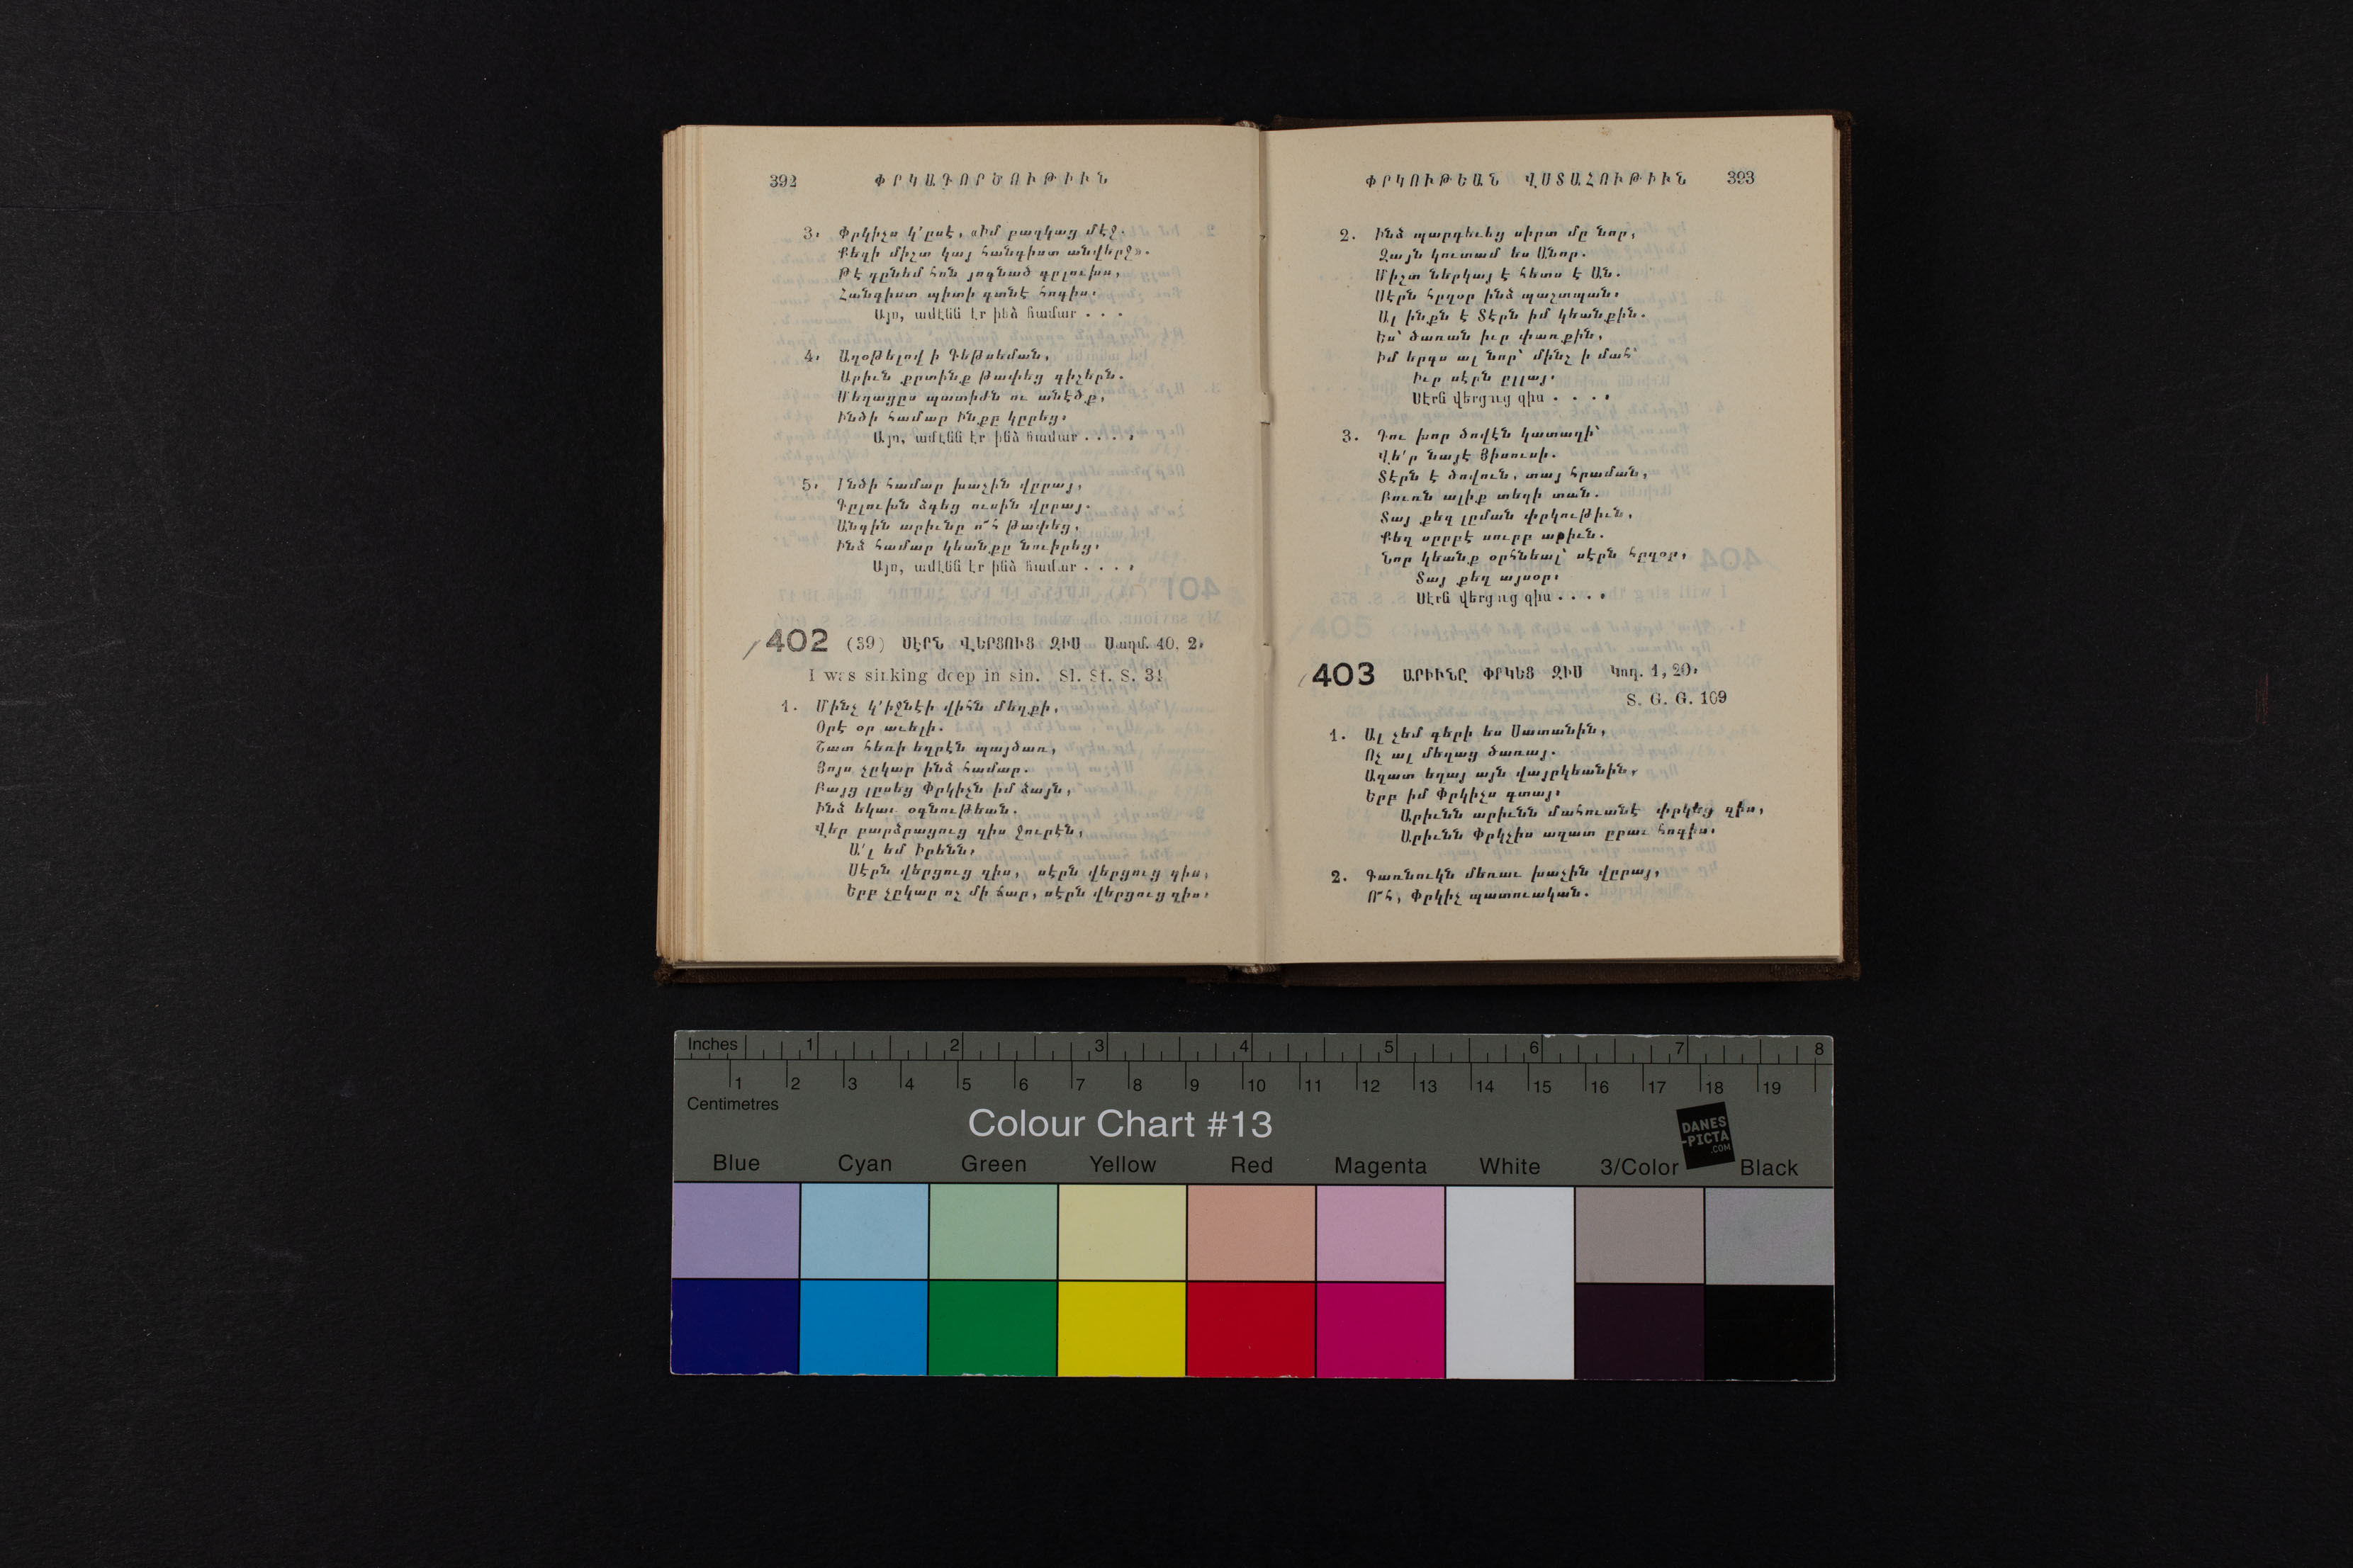 392 ՓՐԿԱԳՈՐԾՈՒԹԻՒՆ
3. Փրկիչս կ՚ըսէ, «Իմ բազկաց մէջ.
Քեզի միշտ կայ հանգիստ անվերջ».
Թէ դընեմ հոն յոգնած գըլուխս,
Հանգիստ պիտի գտնէ հոգիս.
Այո, ամէնն էր ինձ համար . . .
4. Աղօթելով ի Գեթսեման,
Արիւն քրտինք թափեց գիշերն.
Մեղացըս պատիժն ու անէծք,
Ինծի համար Ինքը կըրեց.
Այո, ամէնն էր ինձ համար . . . .
5. Ինծի համար խաչին վըրայ,
Գըլուխն ձգեց ուսին վըրայ.
Անգին արիւնը ո՜հ թափեց,
Ինձ համար կեանքը նուիրեց.
Այո, ամէնն էր ինձ համար . . . .
402 (39) ՍԷՐՆ ՎԵՐՑՈՒՑ ԶԻՍ Սաղմ. 40, 2.
I was sinking deep in sin. Sl. St. S. 31
1. Մինչ կ՚իջնէի վիհն մեղքի,
Օրէ օր աւելի.
Շատ հեռի եզրէն պայծառ,
Յոյս չըկար ինձ համար.
Բայց լըսեց Փրկիչն իմ ձայն,
Ինձ եկաւ օգնութեան.
Վեր բարձրացուց զիս ջուրէն,
Ա՛լ եմ Իրենն.
Սէրն վերցուց զիս, սէրն վերցուց զիս,
Երբ չըկար ոչ մի ճար, սէրն վերցուց զիս.
ՓՐԿՈՒԹԵԱՆ ՎՍՏԱՀՈՒԹԻՒՆ 393
2. Ինձ պարգեւեց սիրտ մը նոր,
Ձայն կուտամ ես Անոր.
Միշտ ներկայ է հետս է Ան.
Սէրն հըզօր ինձ պաշտպան.
Ալ ինքն է Տէրն իմ կեանքին.
Ես՝ ծառան իւր փառքին,
Իմ երգս ալ նոր՝ մինչ ի մահ՝
Իւր սէրն ըլլայ.
Սէրն վերցուց զիս . . . .
3. Դու խոր ծովէն կատաղի՝
Վե՛ր նայէ Յիսուսի.
Տէրն է ծովուն, տայ հրաման,
Բուռն ալիք տեղի տան.
Տայ քեզ լըման փրկութիւն,
Քեզ սըրբէ սուրբ արիւն.
Նոր կեանք օրհնեալ՝ սէրն հըզօր,
Տայ քեզ այսօր.
Սէրն վերցուց զիս . . . .
403 ԱՐԻՒՆԸ ՓՐԿԵՑ ԶԻՍ Կող. 1, 20.
S. G. G. 109
1. Ալ չեմ գերի ես Սատանին,
Ոչ ալ մեղաց ծառայ.
Ազատ եղայ այն վայրկեանին,
Երբ իմ Փրկիչս գտայ.
Արիւնն արիւնն մահուանէ փրկեց զիս,
Արիւնն Փրկչիս ազատ ըրաւ հոգիս.
2. Գառնուկն մեռաւ խաչին վըրայ,
Ո՜հ, Փրկիչ պատուական.
Inches 1 2 3 4 5 6 7 8
1 2 3 4 5 6 7 8 9 10 11 12 13 14 15 16 17 18 19
Centimetres
Colour Chart #13
DANES
-PICTA
.COM
Blue Cyan Green Yellow Red Magenta White 3/Color Black